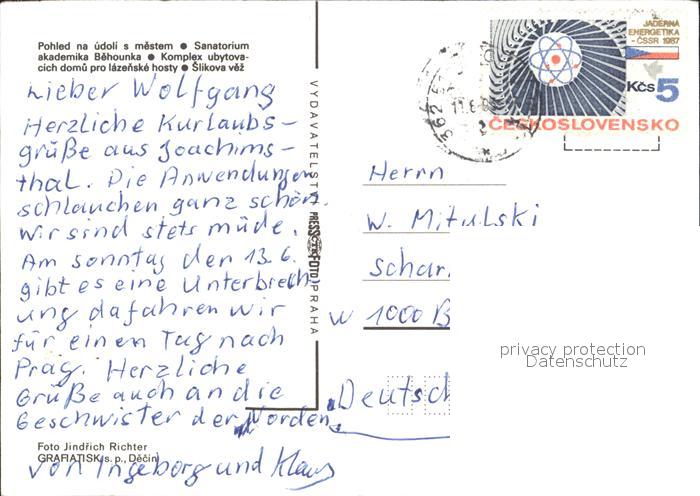 Pohled na údolí s městem ● Sanatorium
akademika Běhounka ● Komplex ubytova-
cích domů pro lázeňské hosty ● Šlikova věž
Lieber Wolfgang
Herzliche Kurlaubs-
grüße aus Joachims-
thal. Die Anwendungen
schlauchen ganz schön.
Wir sind stets müde.
Am Sonntag den 13.6.
gibt es eine Unterbrech
ung da fahren wir
für einen Tag nach
Prag. Herzliche
Grüße auch an die
Geschwister der Norden
von Ingeborg und Klaus
Foto Jindřich Richter
GRAFIATISK, s. p., Děčín
VYDAVATELSTVÍ PRESSFOTO PRAHA
JADERNÁ
ENERGETIKA
-ČSSR 1987
Kčs 5
ČESKOSLOVENSKO
362
Herrn
W. Mitulski
Schar
W 1000 B
Deutsch
privacy protection
Datenschutz